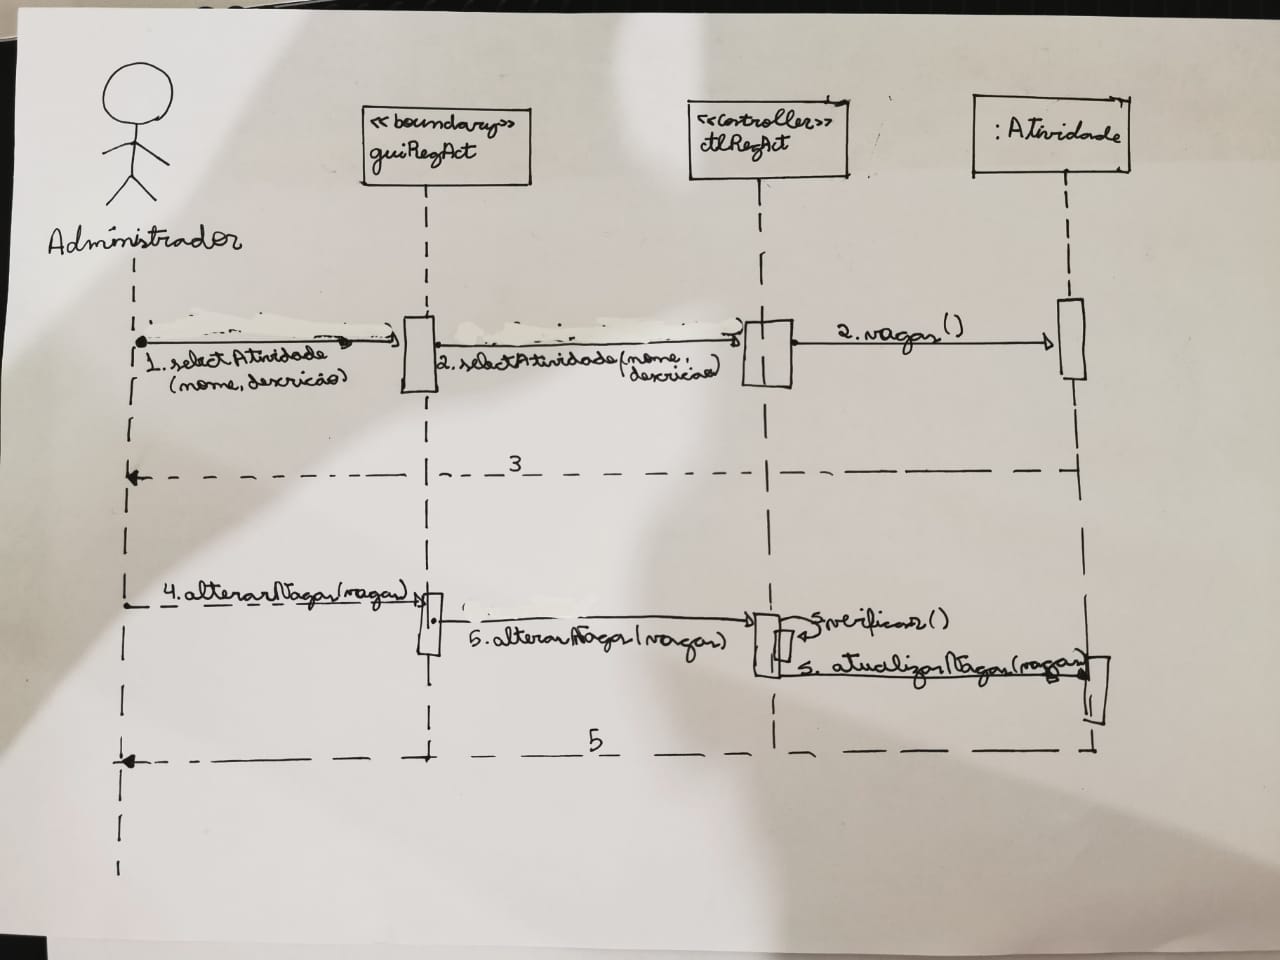 <<boundary>>
guiRegAct
<<controller>>
ctlRegAct
: Atividade
Administrador
1. selectAtividade
(nome, descricão)
2. selectAtividade(nome,
descricao)
2. vagas()
3
4. alterarVagas(vagas)
5. alterarVagas(vagas)
5. verificar()
5. atualizarVagas(vagas)
5